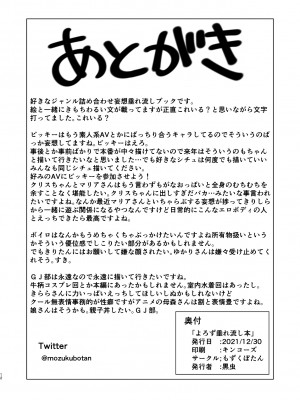 あとがき
好きなジャンル詰め合わせ妄想垂れ流しブックです。
絵と一緒にきもちわるい文が載ってますが正直これいる？と思いながら文字打ってました。これいる？
ビッキーはもう素人系AVとかにばっちり合うキャラしてるのでそういうのばっか妄想してますね。ビッキーはえろ。
事後とか事前ばかりで本番が中々描けてないので来年はそういうのもちゃんと描いて行きたいなと思いました…でも好きなシチュは何度も描いていいみんなも同じシチュ描いてください。
好みのAVにビッキーを参加させよう！
クリスちゃんとマリアさんはもう言わずもがなおっぱいと全身のむちむちを余すことなく堪能したい。クリスちゃんに出しすぎだバカ…みたいな事言われたいですよね。なんか最近マリアさんといちゃらぶする妄想が捗ってきりしらから一緒に遊ぶ関係になるやつなんですけど日常的にこんなエロボディの人とえっちできたら最高ですよね。
ボイロはなんかもうめちゃくちゃぶっかけたいんですよね所有物扱いというかそういう優位感でしこりたい部分があるかもしれません。
でもきりたんにはお願いして嫌な顔されたい。ゆかりさんは嫌々受け止めてくれそう。すき。
GJ部は永遠なので永遠に描いて行きたいですね。
中柄コスプレ回とか本編にあったかもしれません。室内水着回はあったし。
きららさんに力いっぱいえっちしてほしいしぬかもしれないけど
クール無表情事務的が性癖ですがアニメの母森さんは割と表情豊ですよね。
娘さんはそうかも。親子丼したい。GJ部。
Twitter
@mozukubotan
奥付
「よろず垂れ流し本」
発行日：2021/12/30
印刷：キンコーズ
サークル：もずくぼたん
発行者：黒虫